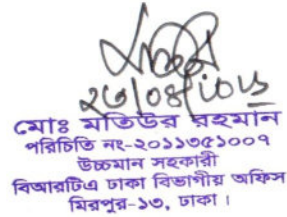 মোঃ মতিউর রহমান
পরিচিতি নং-২০১১৩৫১০০৭
উচ্চমান সহকারী
বিআরটিএ ঢাকা বিভাগীয় অফিস
মিরপুর-১৩, ঢাকা।